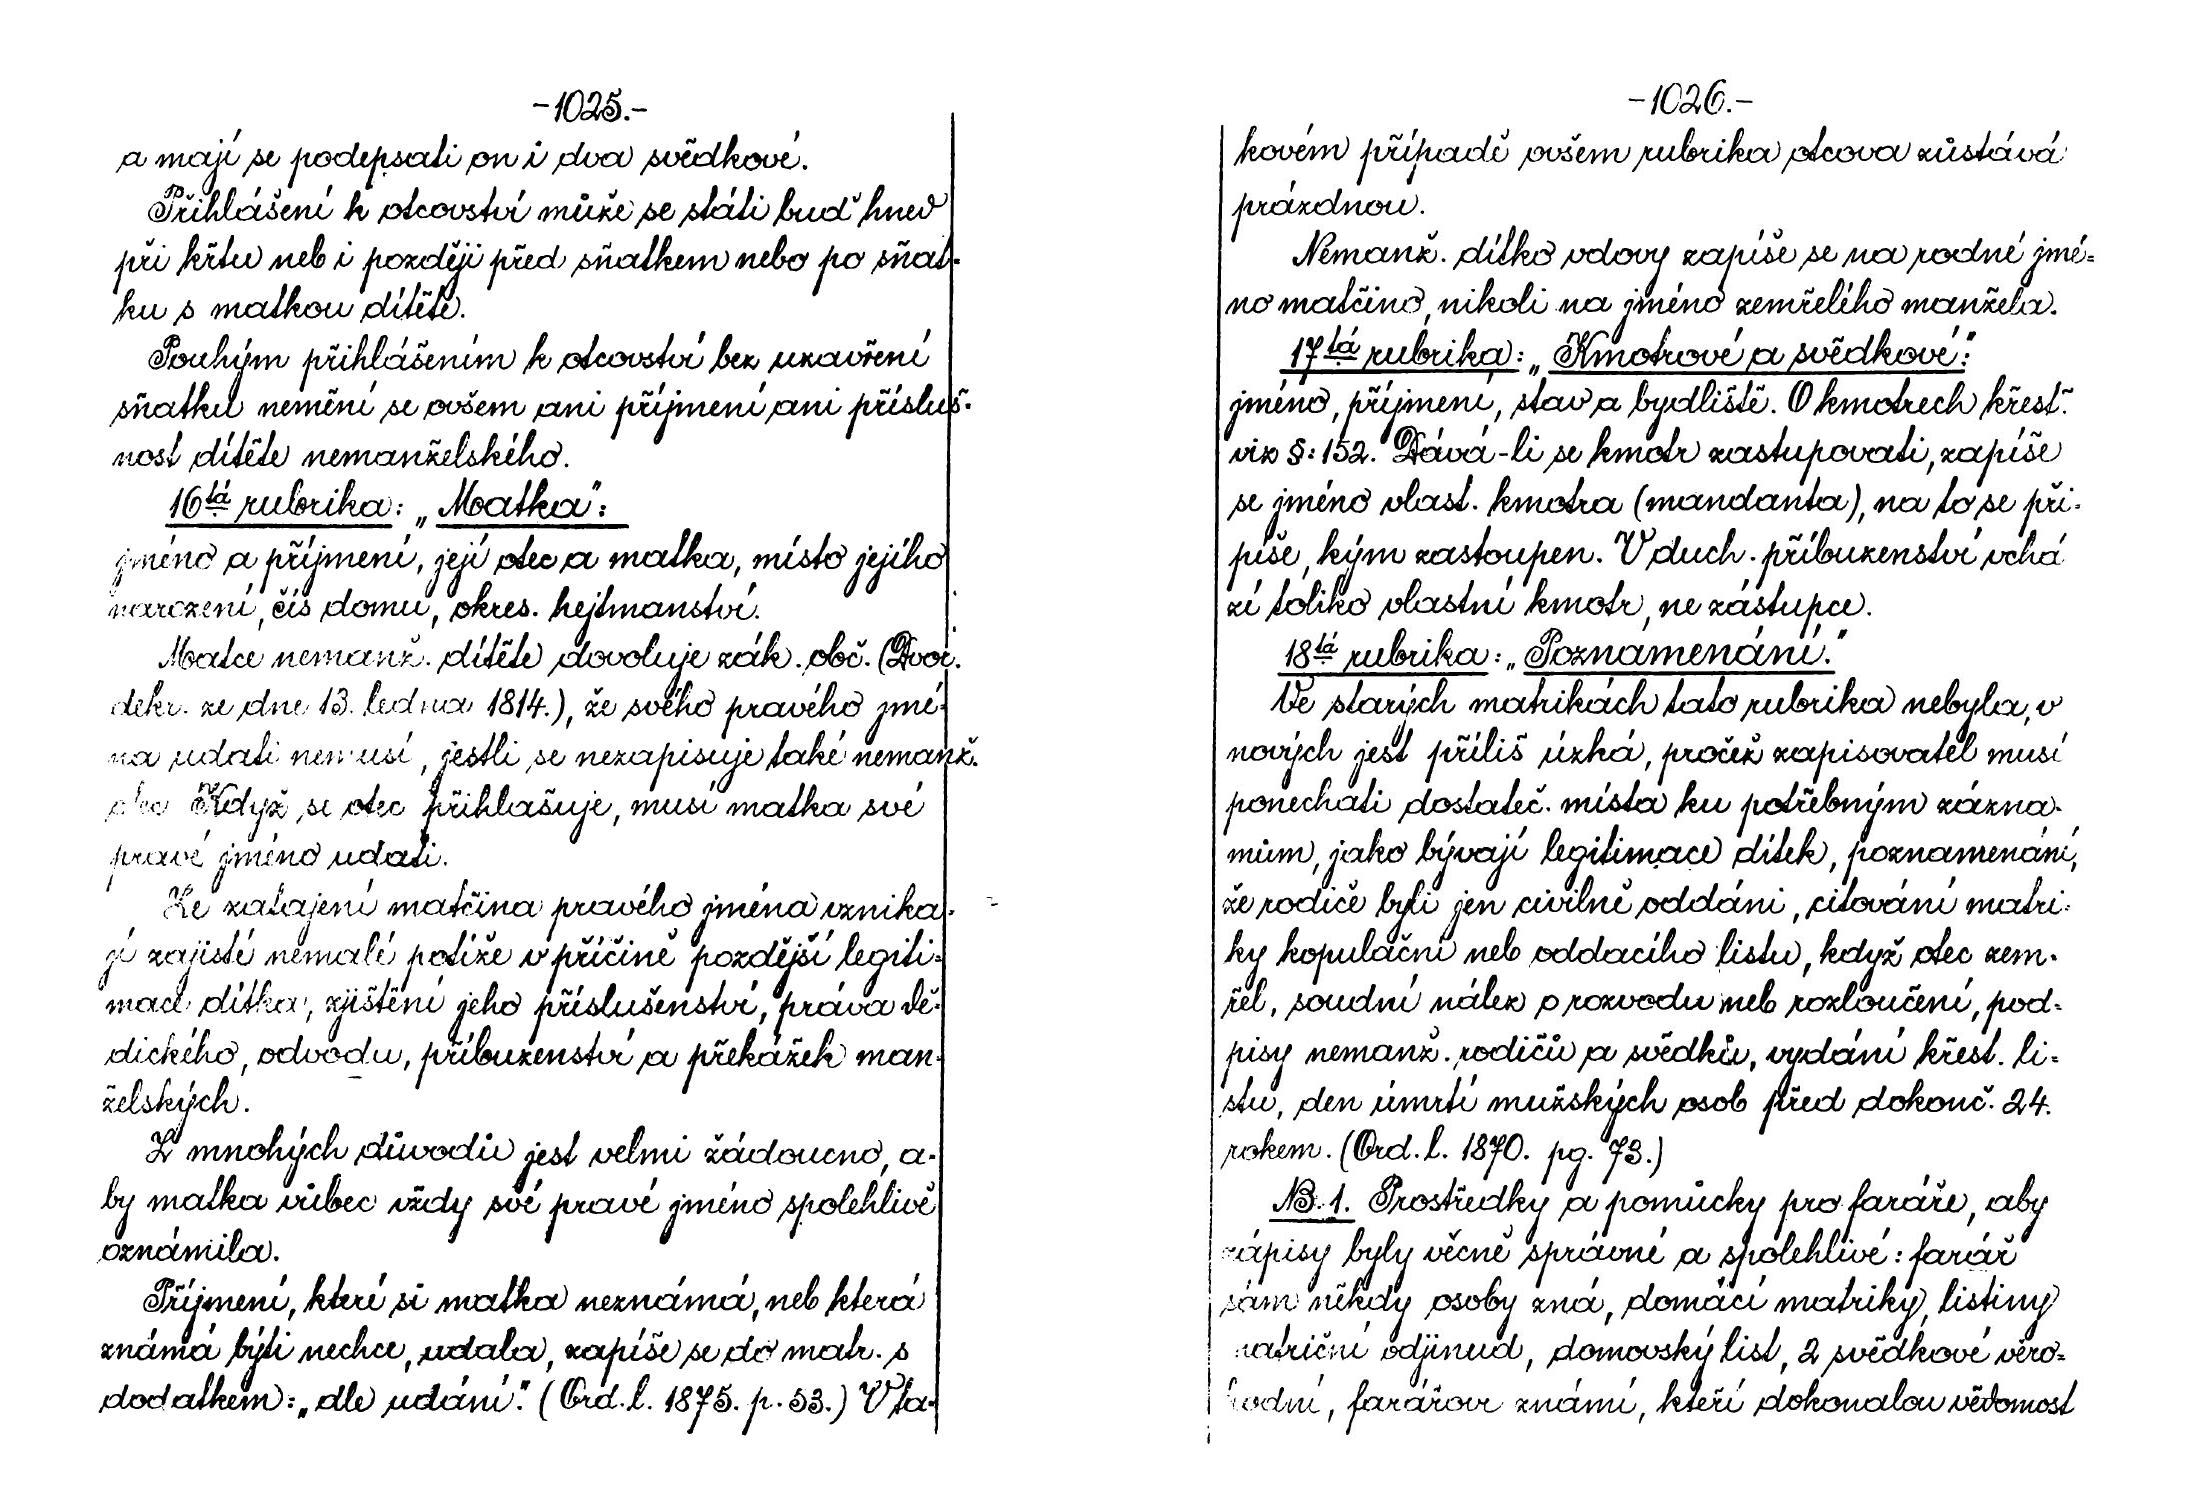 -1025.-
a mají se podepsati on i dva svědkové.
Přihlášení k otcovství může se státi buď hned
při křtu neb i později před sňatkem nebo po sňat-
ku s matkou dítěte.
Pouhým přihlášením k otcovství bez uzavření
sňatku nemění se ovšem ani příjmení ani přísluš-
nost dítěte nemanželského.
16tá rubrika: „Matka":
jméno a příjmení, její otec a matka, místo jejího
narození, čís domu, okres. hejtmanství.
Matce nemanž. dítěte dovoluje zák. obč. (Dvor.
dekr. ze dne 13. ledna 1814.), že svého pravého jmé-
na udati nemusí, jestli se nezapisuje také nemanž.
otec Když se otec přihlašuje, musí matka své
pravé jméno udati.
Ze zatajení matčina pravého jména vznika-
jí zajisté nemalé potíže v příčině pozdější legiti-
mace dítka, zjištění jeho příslušenství, práva dě-
dického, odvodu, příbuzenství a překážek man-
želských.
Z mnohých důvodů jest velmi žádoucno, a-
by matka vůbec vždy své pravé jméno spolehlivě
oznámila.
Příjmení, které si matka neznámá, neb která
známá býti nechce, udala, zapíše se do matr. s
dodatkem: „dle udání." (Ord. l. 1875. p. 53.) V ta-
-1026.-
kovém případě ovšem rubrika otcova zůstává
prázdnou.
Nemanž. dítko vdovy zapíše se na rodné jmé-
no matčino, nikoli na jméno zemřelého manžela.
17tá rubrika: „Kmotrové a svědkové:"
jméno, příjmení, stav a bydliště. O kmotrech křest.
viz §: 152. Dává-li se kmotr zastupovati, zapíše
se jméno vlast. kmotra (mandanta), na to se při-
píše, kým zastoupen. V duch. příbuzenství vchá
zí toliko vlastní kmotr, ne zástupce.
18tá rubrika: „Poznamenání."
Ve starých matrikách tato rubrika nebyla, v
nových jest příliš úzká, pročež zapisovatel musí
ponechati dostateč. místa ku potřebným zázna-
mům, jako bývají legitimace dítek, poznamenání,
že rodiče byli jen civilně oddáni, citování matri-
ky kopulační neb oddacího listu, když otec zem-
řel, soudní nález o rozvodu neb rozloučení, pod-
pisy nemanž. rodičů a svědků, vydání křest. li-
stu, den úmrtí mužských osob před dokonč. 24.
rokem. (Ord. l. 1870. pg. 73.)
NB. 1. Prostředky a pomůcky pro faráře, aby
zápisy byly věcně správné a spolehlivé: farář
sám někdy osoby zná, domácí matriky, listiny
matriční odjinud, domovský list, 2 svědkové věro-
hodní, farářovi známí, kteří dokonalou vědomost